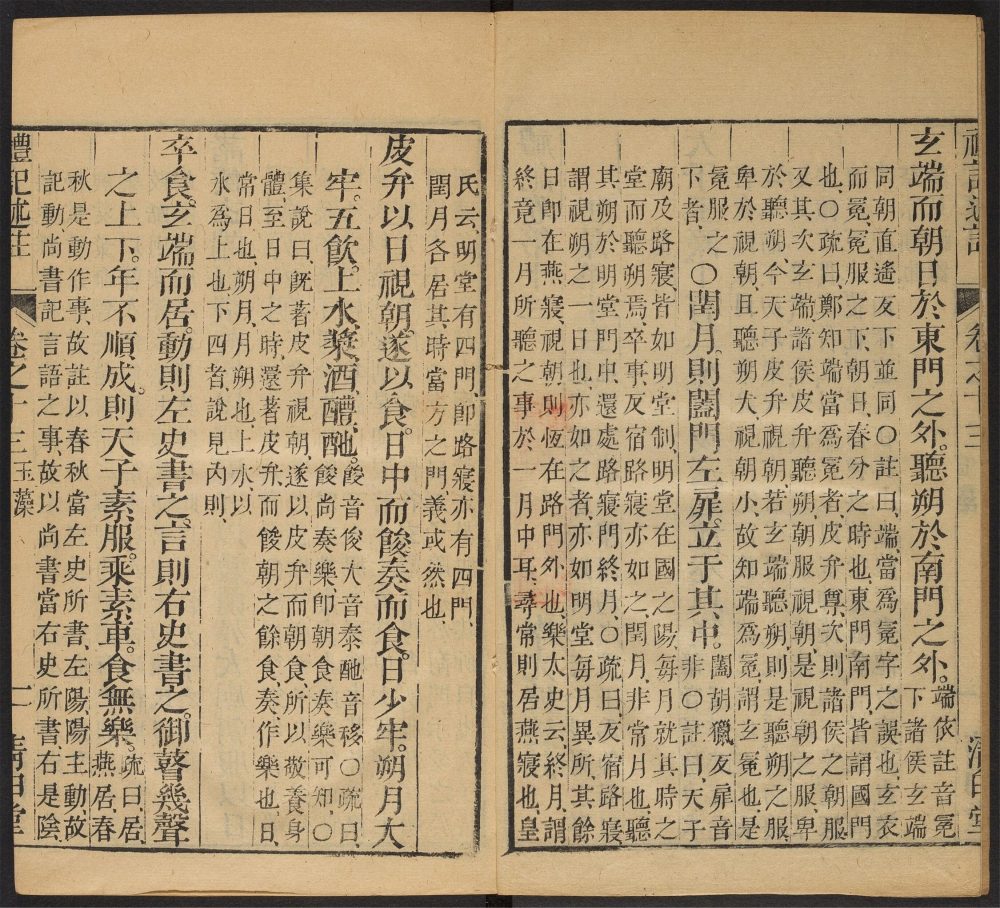 禮記述註 卷之十三
玄端而朝日於東門之外。聽朔於南門之外。端依註音冕
下諸侯玄端
同朝直遙反下並同〇註曰端當爲冕字之誤也玄衣
而冕冕服之下朝日春分之時也東門南門皆謂國門
也〇疏曰鄭知端當爲冕者皮弁尊次則諸侯之朝服
又其次玄端諸侯皮弁聽朔朝服視朝是視朝之服卑
於聽朔今天子皮弁視朝若玄端聽朔則是聽朔之服
卑於視朝且聽朔大視朝小故知端爲冕謂玄冕也
冕服之
下者〇閏月則闔門左扉立于其中。闔胡獵反扉音
非〇註曰天子
廟及路寢皆如明堂制明堂在國之陽每月就其時之
堂而聽朔焉卒事反宿路寢亦如之閏月非常月也聽
其朔於明堂門中還處路寢門終月〇疏曰反宿路寢
謂視朔之一日也亦如之者亦如明堂每月異所其餘
日卽在燕寢視朝則恆在路門外也樂太史云終月謂
終竟一月所聽之事於一月中耳尋常則居燕寢也皇
氏云明堂有四門卽路寢亦有四門
閏月各居其時當方之門義或然也
皮弁以日視朝。遂以食。日中而餕奏而食。日少牢。朔月大
牢。五飲。上水漿。酒醴酏。餕音俊大音泰酏音移〇疏曰
餕尚奏樂卽朝食奏樂可知〇
集說曰旣著皮弁視朝遂以皮弁而朝食所以敬養身
體至日中之時還著皮弁而餕朝之餘食奏作樂也日
常日也朔月月朔也上水以
水爲上也下四者說見內則
卒食。玄端而居。動則左史書之。言則右史書之。御瞽幾聲
之上下。年不順成。則天子素服。乘素車。食無樂。疏曰居
燕居春
秋是動作事故註以春秋當左史所書左陽陽主動故
記動尚書記言語之事故以尚書當右史所書右是陰
禮記述註 卷之十三 玉藻